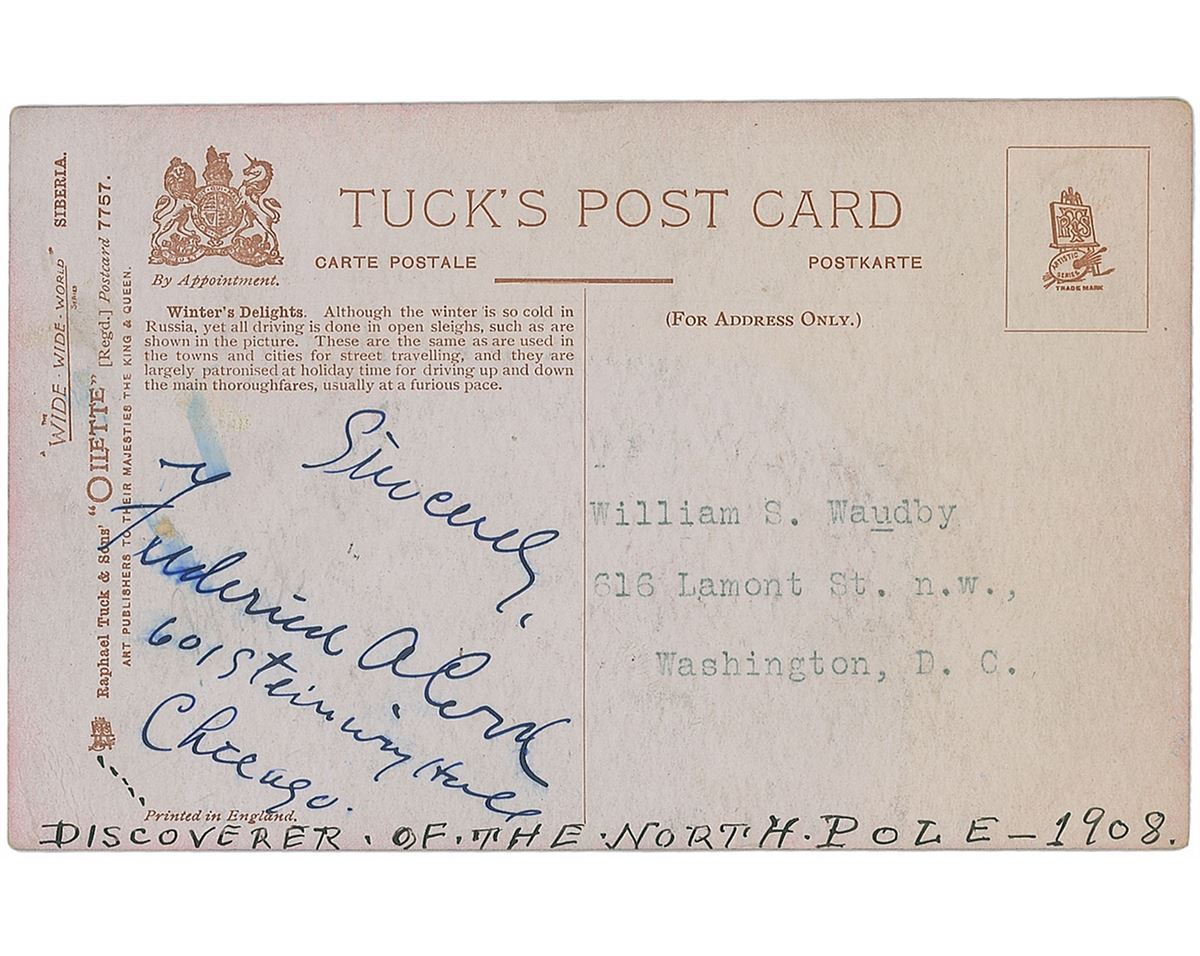 "THE
WIDE-WIDE-WORLD"
SERIES
SIBERIA.
Raphael Tuck & Sons' "OILETTE" [Regd.] Postcard 7757.
ART PUBLISHERS TO THEIR MAJESTIES THE KING & QUEEN.
By Appointment.
TUCK'S POST CARD
CARTE POSTALE
POSTKARTE
ARTISTIC
SERIES
TRADE MARK
(FOR ADDRESS ONLY.)
Winter's Delights. Although the winter is so cold in
Russia, yet all driving is done in open sleighs, such as are
shown in the picture. These are the same as are used in
the towns and cities for street travelling, and they are
largely patronised at holiday time for driving up and down
the main thoroughfares, usually at a furious pace.
Sincerely,
Frederick A Cook
601 Steinway Hall
Chicago.
William S. Waudby
616 Lamont St. n.w.,
Washington, D. C.
Printed in England.
DISCOVERER. OF. THE. NORTH. POLE - 1908.